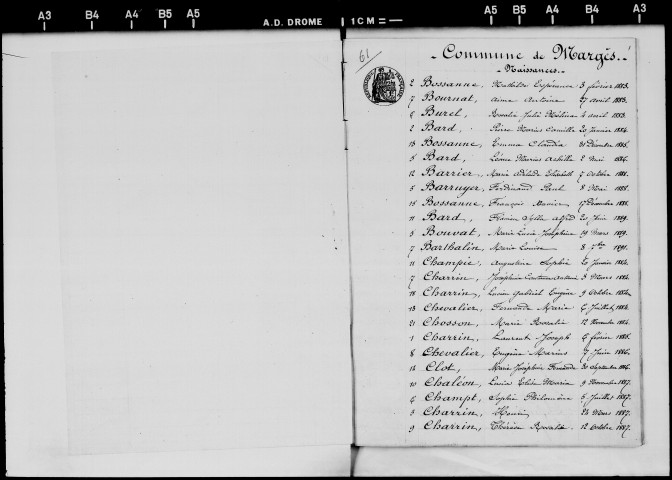 A3 B4 A4 B5 A5 A.D. DROME 1CM = A5 B5 A4 B4 A3
61
Commune de Margès.
Naissances.
2 Bossanne, Mathilde Espérance 3 février 1883.
7 Bournat, Aimé Antoine 27 avril 1883.
6 Burel, Rosalie Julie Mélina 4 avril 1883.
2 Bard, Pierre Marius Camille 20 Janvier 1884.
13 Bossanne, Emma Claudia 31 Décembre 1885.
5 Bard, Marius Achille 2 Mai 1886.
12 Barrier, Marie Adélaïde Elisabeth 7 Octobre 1888.
5 Barruyer, Ferdinand Paul 8 Mai 1888.
15 Bossanne, François 17 Décembre 1888.
11 Bard, Alfred 20 Juin 1889.
5 Bouvat, Marie Lucie Joséphine 19 Mars 1889.
7 Barthalin, Marie Louise 8 7bre 1891.
11 Champié, Augustine Sophie 20 Janvier 1884.
7 Charrin, Joséphine 3 Mars 1884.
18 Charrin, Lucien Gabriel Eugène 9 Octobre 1884.
13 Chevalier, Fernande Maria 6 Juillet 1884.
21 Chosson, Marie Rosalie 12 Novembre 1884.
1 Charrin, Laurent Joseph 6 février 1885.
8 Chevalier, Eugène Marius 7 Juin 1886.
14 Clot, Marie Joséphine Fernande 30 Septembre 1886.
10 Chaléon, Lucie Elise Maria 9 Novembre 1887.
6 Champt, Sophie Philomène 6 Juillet 1887.
3 Charrin, Henri 24 Mars 1887.
9 Charrin, Thérèse Rosalie 12 Octobre 1887.